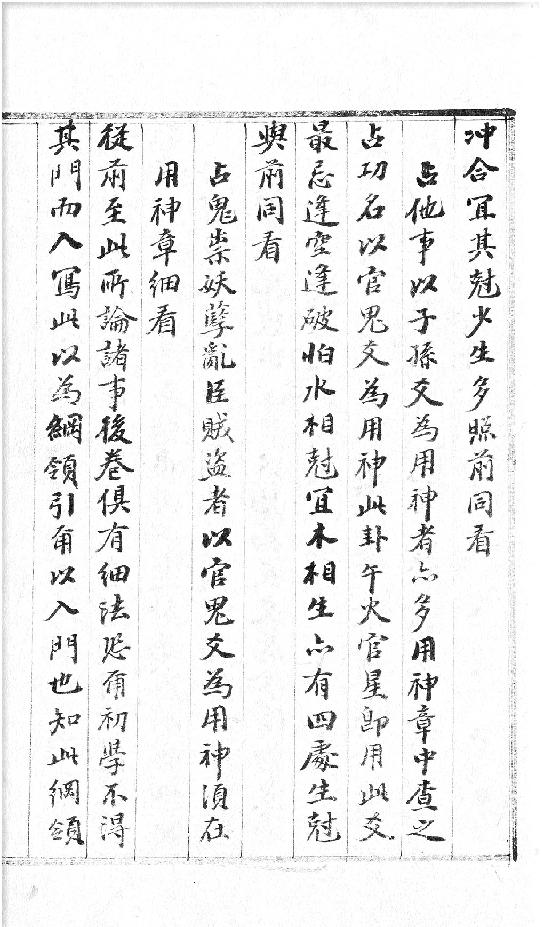 冲合宜其尅少生多照前同看
占他事以子孫爻為用神者亦多用神章中查之
占功名以官鬼爻為用神此卦午火官星即用此爻
最忌逢空逢破怕水相尅宜木相生亦有四處生尅
與前同看
占鬼祟妖孽亂臣賊盜者以官鬼爻為用神須在
用神章細看
從前至此所論諸事後卷俱有細法恐爾初學不得
其門而入寫此以為綱領引爾以入門也知此綱領